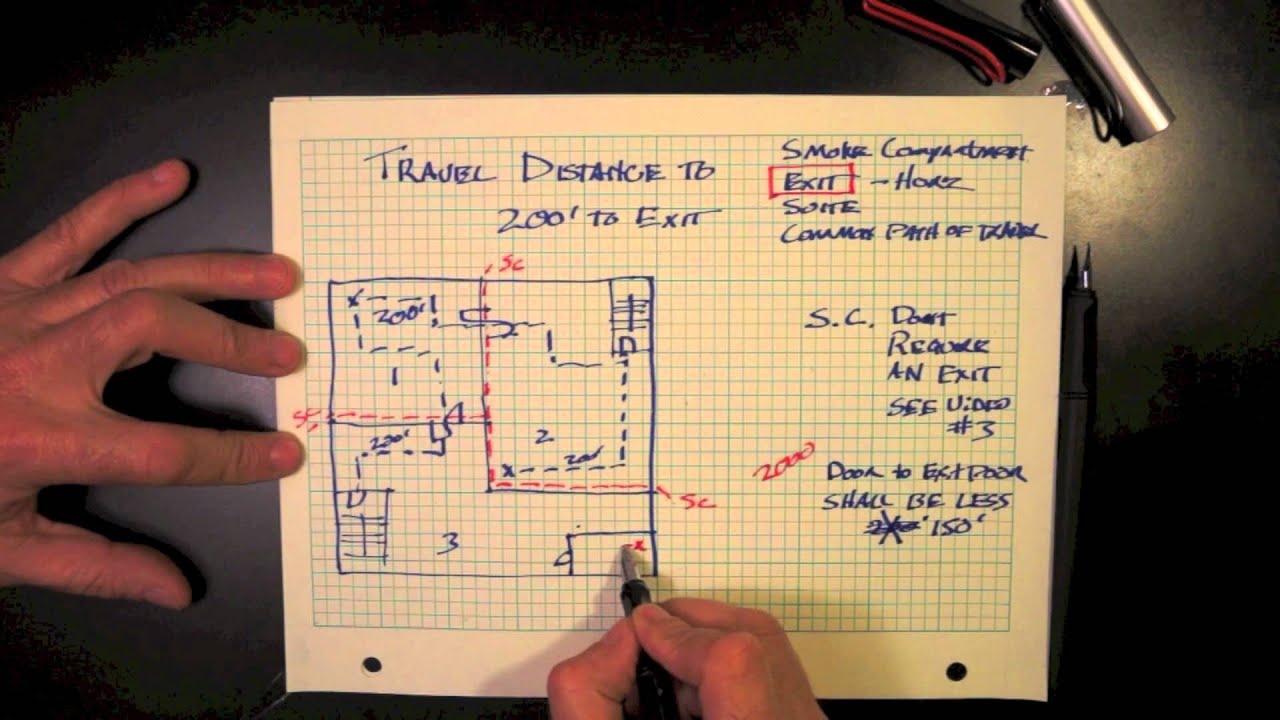 TRAVEL DISTANCE TO
200' TO EXIT
SMOKE COMPARTMENT
EXIT - HORZ
SUITE
COMMON PATH OF TRAVEL
SC
200'
1
SC
200'
2
200'
SC
3
X
X
X
S.C. DON'T
REQUIRE
AN EXIT
SEE VIDEO
#3
2000
DOOR TO EXIT DOOR
SHALL BE LESS
150'